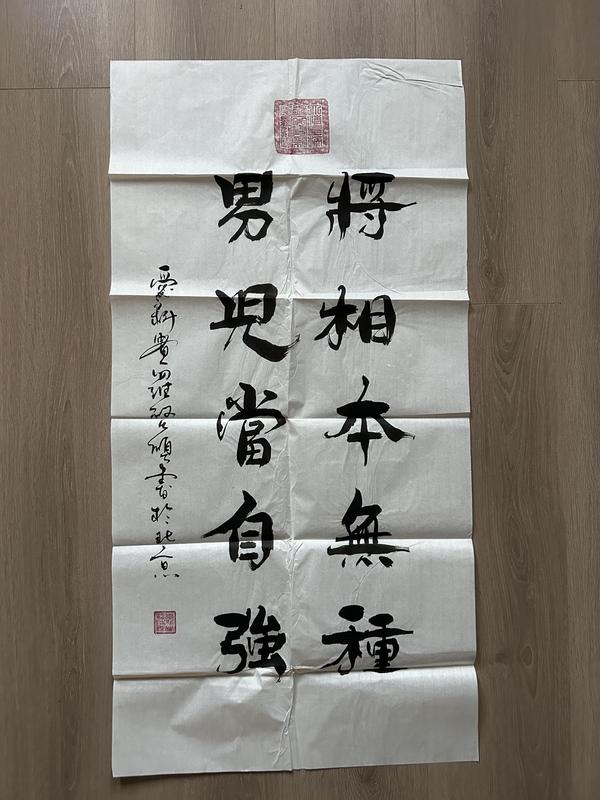 將相本無種
男兒當自強
愛新覺羅啟顯書於北京